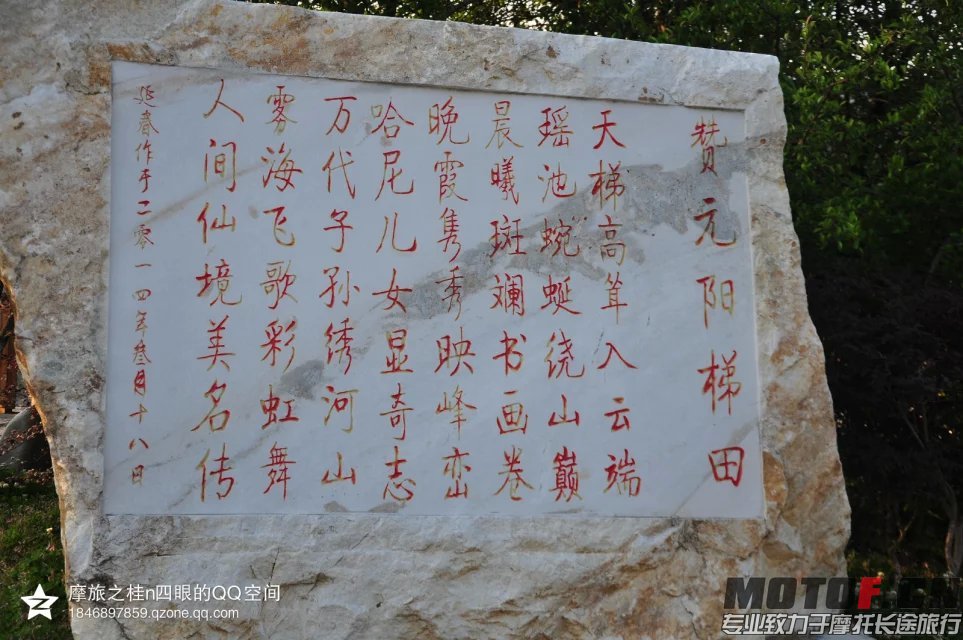 赞元阳梯田
天梯高耸入云端
瑶池蜿蜒绕山巅
晨曦斑斓书画卷
晚霞隽秀映峰峦
哈尼儿女显奇志
万代子孙绣河山
雾海飞歌彩虹舞
人间仙境美名传
延春作于二零一四年叁月十八日
摩旅之桂n四眼的QQ空间
1846897859.qzone.qq.com
MOTOF.CN
专业致力于摩托长途旅行